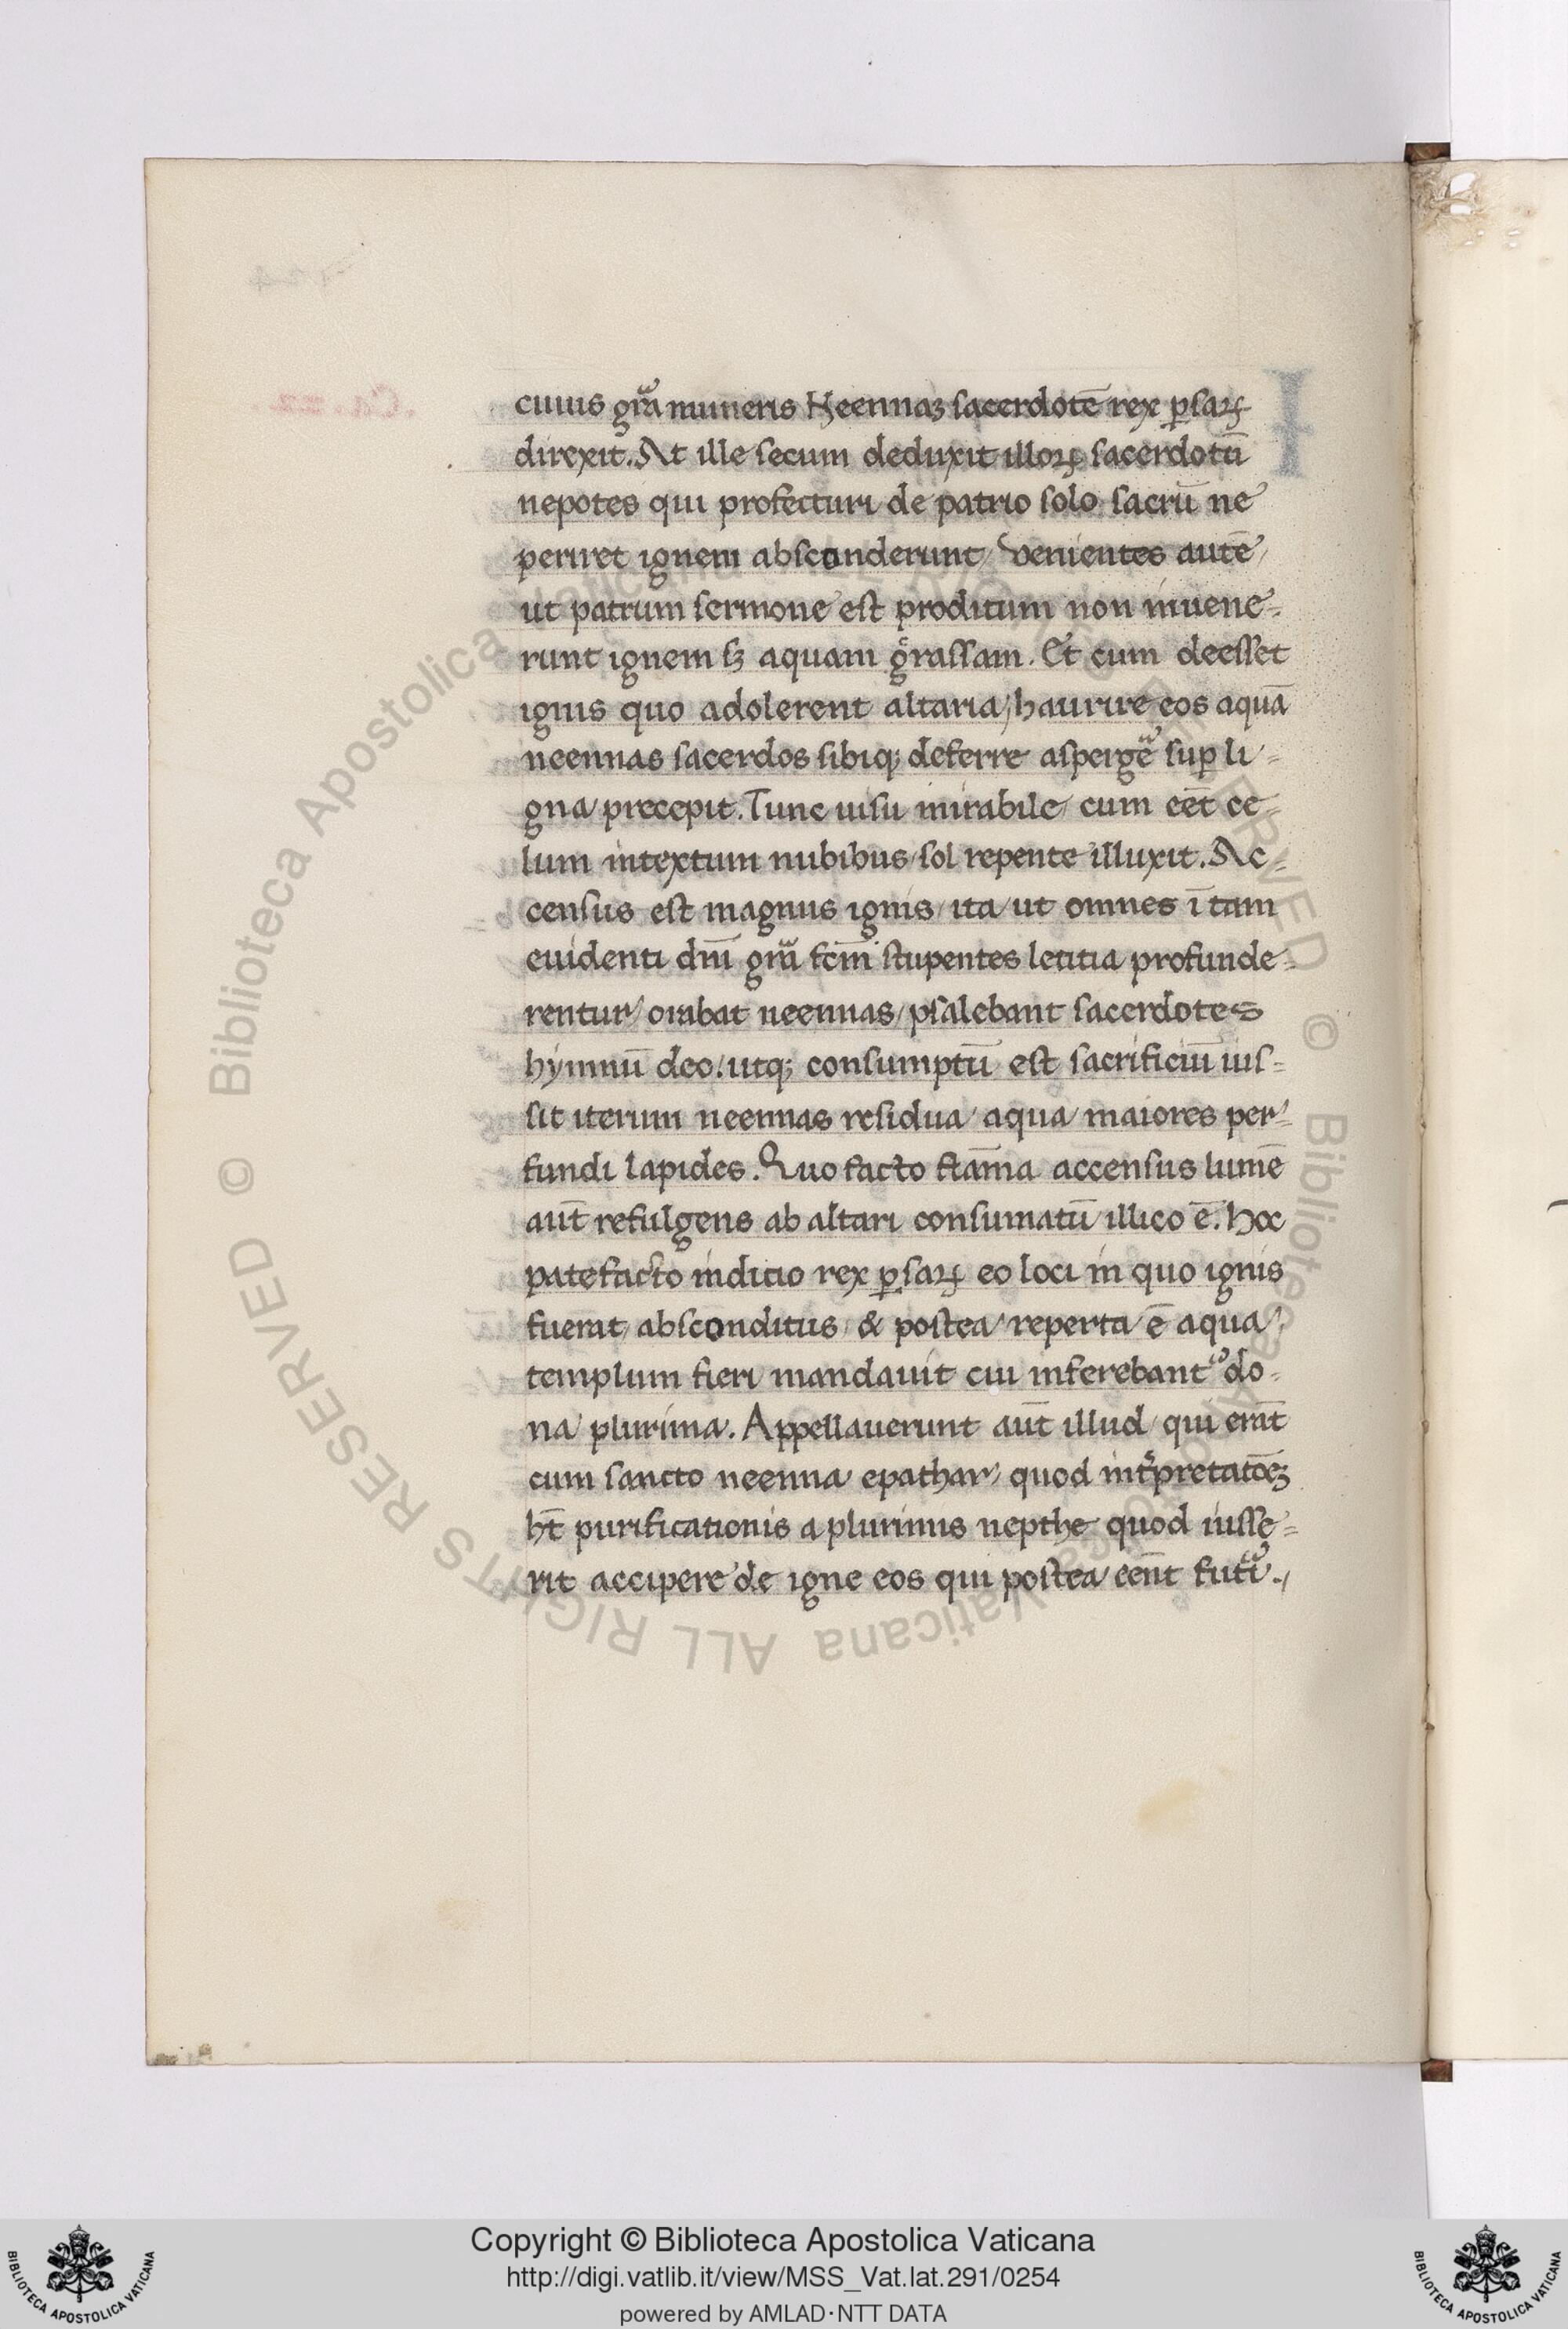 cuius gr̃a muneris Neennaꝫ sacerdotē rex ꝑsaꝝ
direxit. At ille secum deduxit illoꝝ sacerdotū
nepotes qui profecturi de patrio solo sacrū ne
periret ignem absconderunt / Venientes autē /
ut patrum sermone est proditum non inuene-
runt ignem sꝫ aquam grassam. Et cum deesset
ignis quo adolerent altaria / haurire eos aquā
neennas sacerdos sibiqꝫ deferre aspergeᷓ suꝑ li-
gna precepit. Tunc uisu mirabile / cum eēt ce-
lum intextum nubibus / sol repente illuxit. Ac-
census est magnus ignis / ita / ut omnes ī tam
euidenti dm̄ gr̃a fcm̄ stupentes letitia profunde-
rentur / orabat neennas / psalebant sacerdotes
hymnū deo / utqꝫ consumptū est sacrificiū ius-
sit iterum neennas residua aqua maiores per-
fundi lapides. Quo facto flam̄a accensus lumē
aūt refulgens ab altari consumatū illico ē. Hoc
patefacto inditio rex ꝑsaꝝ eo loci in quo ignis
fuerat / absconditus / & postea reperta ē aqua /
templum fieri mandauit cui inferebant᷑ do-
na plurima. Appellauerunt aūt illud qui erāt
cum sancto neenna epathar / quod int̃pretatōeꝫ
ht̄ purificationis a plurimis nepthe quod iusse-
rit accipere de igne eos qui postea eēnt futiᷓ.,
© Biblioteca Apostolica Vaticana ALL RIGHTS RESERVED © Biblioteca Apostolica Vaticana ALL RIGHTS RESERVED
Copyright © Biblioteca Apostolica Vaticana
http://digi.vatlib.it/view/MSS_Vat.lat.291/0254
powered by AMLAD·NTT DATA
BIBLIOTECA APOSTOLICA VATICANA
BIBLIOTECA APOSTOLICA VATICANA